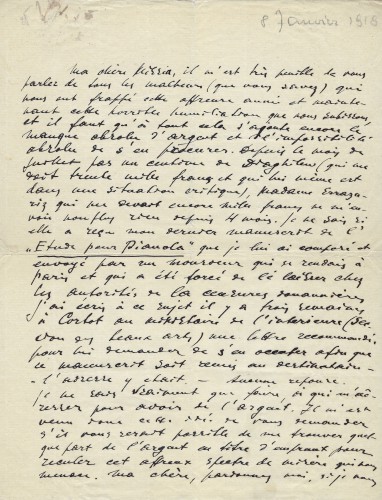 8 Janvier 1918
Ma chère Missia, il m'est très penible de vous
parler de tous les malheurs (que vous savez) qui
nous ont frappé cette affreuse année et mainte-
nant cette horrible humiliation que nous subissons,
et il faut qu'à tout cela s'ajoute encore le
manque absolu d'argent et l'impossibilité
absolue de s'en procurer. Depuis le mois de
Juillet pas un centime de Diaghilew (qui me
doit trente mille francs et qui lui même est
dans une situation critique), Madame Erazu-
riz qui me devait encore mille francs ne m'en-
voie non plus rien depuis 4 mois. Je ne sais si
elle a reçu mon dernier manuscrit de l'
„Etude pour Pianola" que je lui ai composé et
envoyé par un monsieur qui se rendait à
Paris et qui a été forcé de le laisser chez
les autorités de la douanières
j'ai écris à ce sujet il y a trois semaines
à Cortot au ministère de l'interieure (Sec-
tion des beaux arts) une lettre recommandée
pour lui demander de s'en occuper afin que
ce manuscrit soit remis au destinataire-
- l'adresse y était. — Aucune reponse.
Je ne sais vraiment que faire, à qui m'ad-
resser pour avoir de l'argent. Il m'est
venu donc cette idée de vous demander
s'il vous serait possible de me trouver quel-
que part de l'argent au titre d'emprunt pour
reculer cet affreux spectre de misère qui nous
menace. Ma chère, pardonnez moi, si je vous